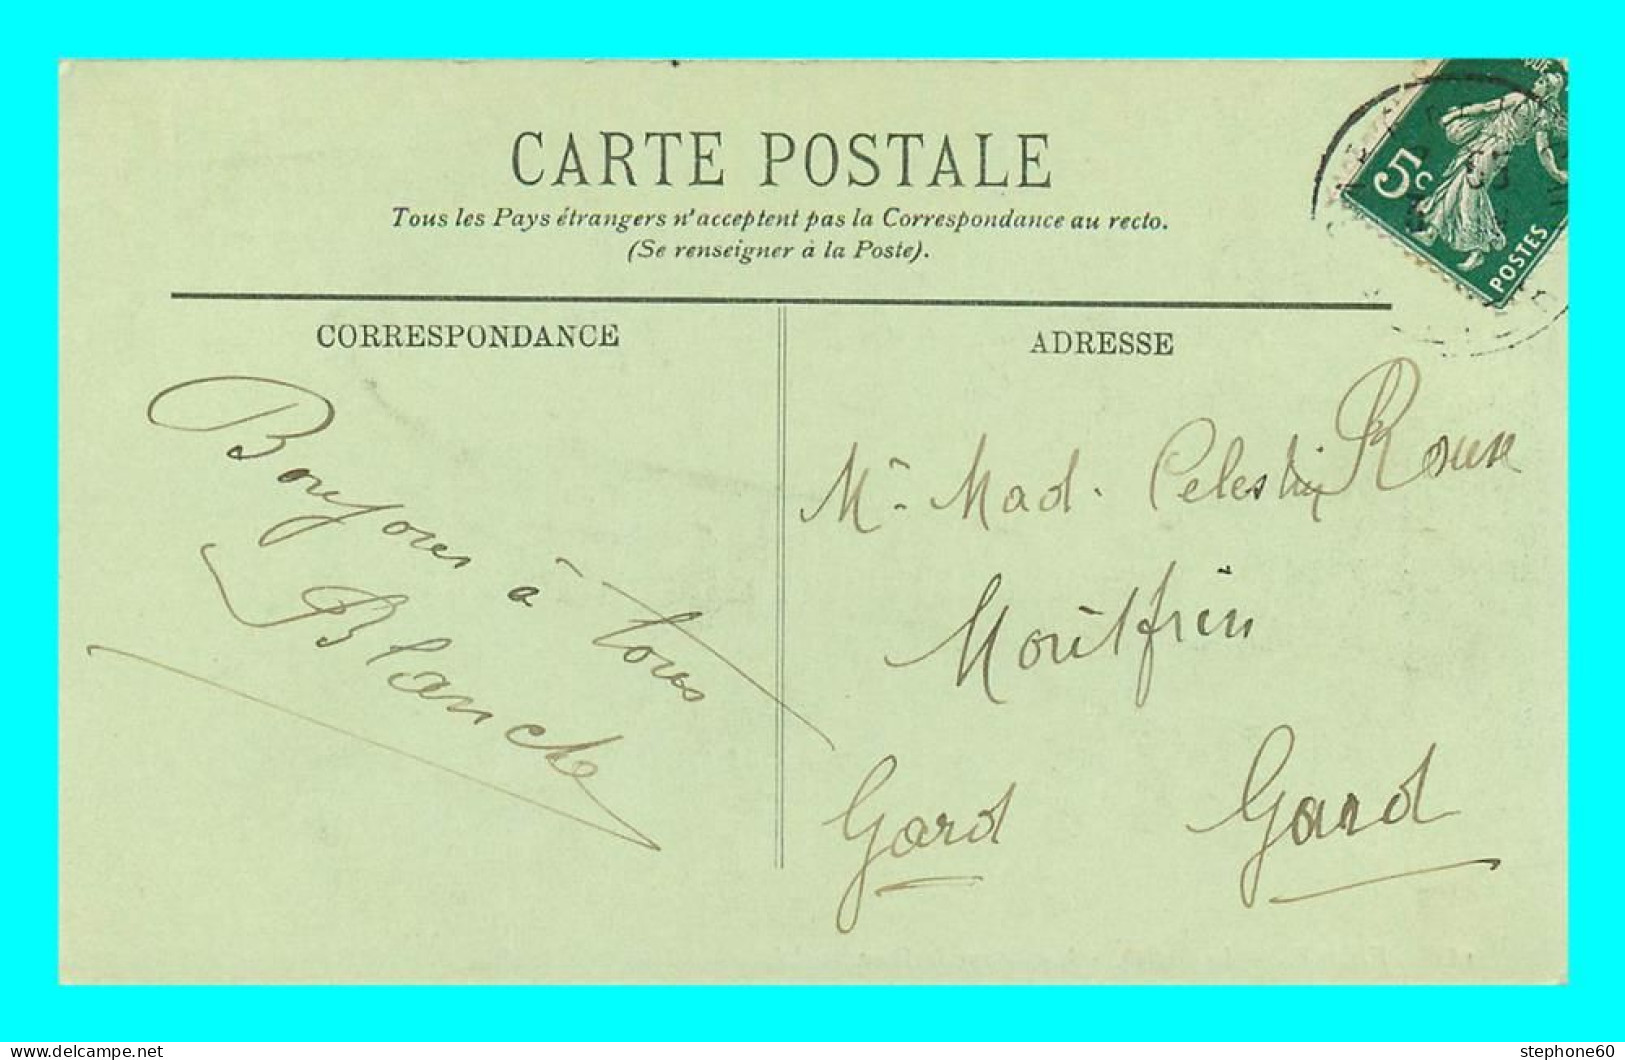 CARTE POSTALE
Tous les Pays étrangers n'acceptent pas la Correspondance au recto.
(Se renseigner à la Poste).
CORRESPONDANCE
Bonjour à tous
Blanche
ADRESSE
Mr Mad. Celestin Roux
Montfrin
Gard Gard
5c
POSTES
delcampe.net
stephone60